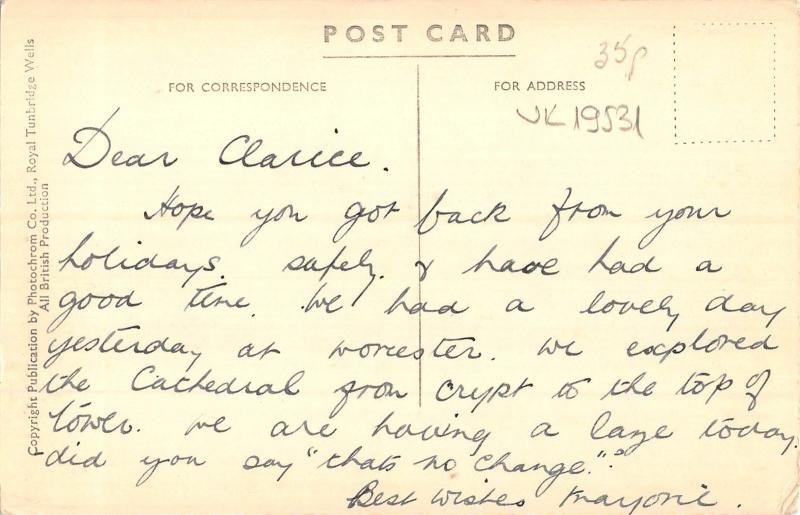 POST CARD
35p
FOR CORRESPONDENCE
FOR ADDRESS
UK19531
Dear Clarice.
Hope you got back from your
holidays. safely. & have had a
good time. We had a lovely day
yesterday at Worcester. We explored
the Cathedral from crypt to the top of
tower. We are having a laze today.
did you say "thats no change."?
Best Wishes Marjorie.
Copyright Publication by Photochrom Co. Ltd., Royal Tunbridge Wells
All British Production